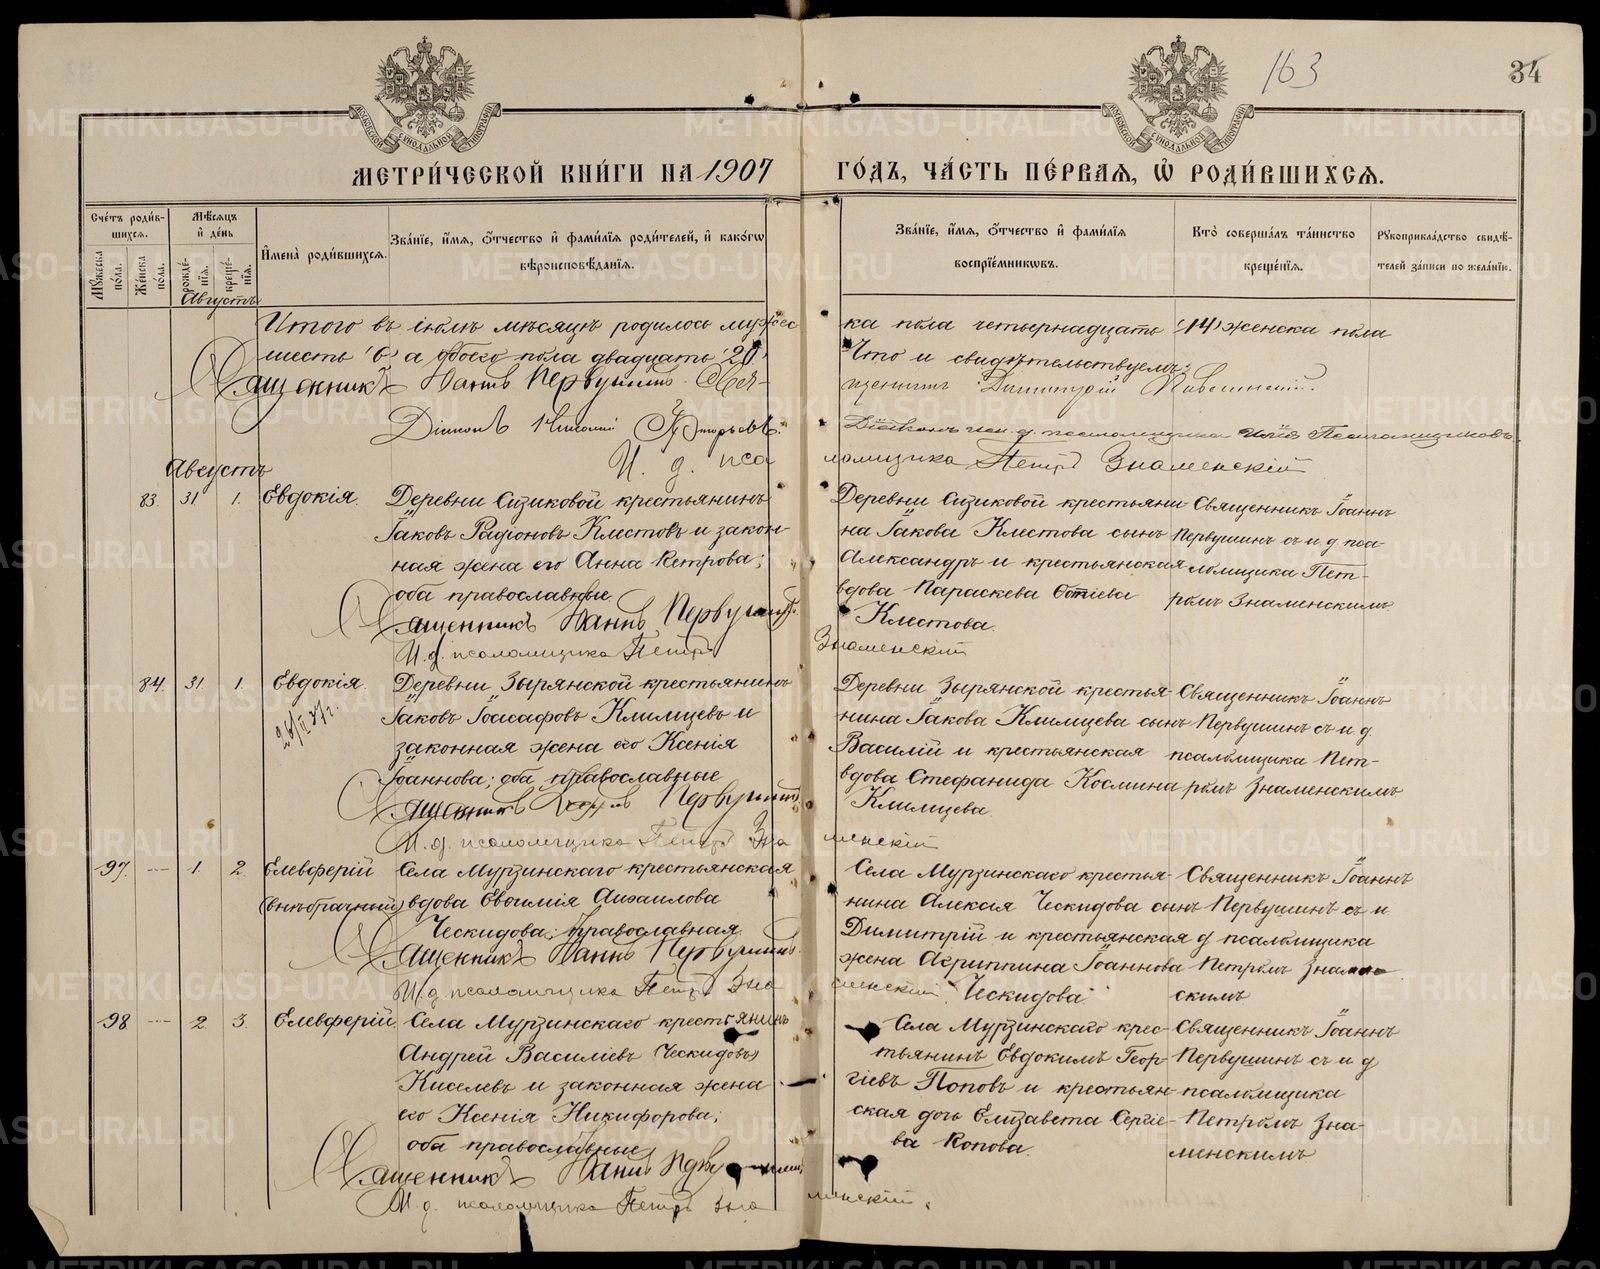 163
34
МЕТРИ́ЧЕСКОЙ КНИ́ГИ НА 1907 ГО́ДЪ, ЧА́СТЬ ПЕ́РВАѦ, Ѡ҆ РОДИ́ВШИХСѦ.
Сче́тъ роди́в-
шихсѧ.
Мꙋжеска по́ла.
Же́нска по́ла.
Мѣ́сѧцъ
и҆ де́нь
рожде́-
нїѧ.
креще́-
нїѧ.
И҆мена̀ роди́вшихсѧ.
Зва́нїе, и҆́мѧ, ѻ҆́тчество и҆ фами́лїѧ роди́телей, и҆ како́гѡ
вѣроисповѣ́данїѧ.
Зва́нїе, и҆́мѧ, ѻ҆́тчество и҆ фами́лїѧ
воспрїе́мникѡвъ.
Кто̀ соверша́лъ та́инство
креще́нїѧ.
Рꙋкоприкла́дство свидѣ́-
телей за́писи по жела́нїю.
Августъ
Итого въ іюлѣ мѣсяцѣ родилось мужес
ка пола четырнадцать (14) женска пола
шесть (6) а обоего пола двадцать (20)
Что и свидѣтельствуемъ:
Священникъ Іоаннъ Первушинъ. Свя-
щенникъ Димитрій
Діаконъ Николай
Діаконъ на и. д. псаломщика
И. д. пса
ломщика Петръ Знаменскій
Августъ
83. 31 1. Евдокія.
Деревни Сизиковой крестьянинъ
Іаковъ Радіоновъ Клестовъ и закон-
ная жена его Анна Петрова;
оба православные.
Священникъ Іоаннъ Первушинъ.
И. д. псаломщика Петръ
Знаменскій
Деревни Сизиковой крестьяни-
на Іакова Клестова сынъ
Александръ и крестьянская
вдова Параскева Фотіева
Клестова.
Священникъ Іоаннъ
Первушинъ съ и. д. пса-
ломщика Пет-
ромъ Знаменскимъ.
84. 31. 1. Евдокія.
Деревни Зырянской крестьянинъ
Іаковъ Іоасафовъ Климцевъ и
законная жена его Ксенія
Іоаннова; оба православные
Священникъ Іоаннъ Первушинъ
И. д. псаломщика Петръ Зна
менскій
Деревни Зырянской крестья-
нина Іакова Климцева сынъ
Василій и крестьянская
вдова Стефанида Космина
Климцева.
Священникъ Іоаннъ
Первушинъ съ и. д.
псаломщика Пет-
ромъ Знаменскимъ
97. — 1. 2. Елевферій
(внѣбрачный)
Села Мурзинскаго крестьянская
вдова Евфимія
Ческидова; православная.
Священникъ Іоаннъ Первушинъ.
И. д. псаломщика Петръ Зна
менскій
Села Мурзинскаго крестья-
нина Алексія Ческидова сынъ
Димитрій и крестьянская
жена Агриппина Іоаннова
Ческидова
Священникъ Іоаннъ
Первушинъ съ и
д псаломщика
Петромъ Знамен
скимъ
98 — 2. 3. Елевферій.
Села Мурзинскаго крестьянинъ
Андрей Василіевъ Ческидовъ
Киселевъ и законная жена
его Ксенія Никифорова;
оба православные,
Священникъ Іоаннъ
И. д. псаломщика Петръ Зна
менскій.
Села Мурзинскаго крес-
тьянинъ Евдокимъ Геор-
гіевъ Поповъ и крестьян-
ская дочь Елизавета Сергіе-
ва Попова.
Священникъ Іоаннъ
Первушинъ съ и д
псаломщика
Петромъ Зна-
менскимъ
METRIKI.GASO-URAL.RU